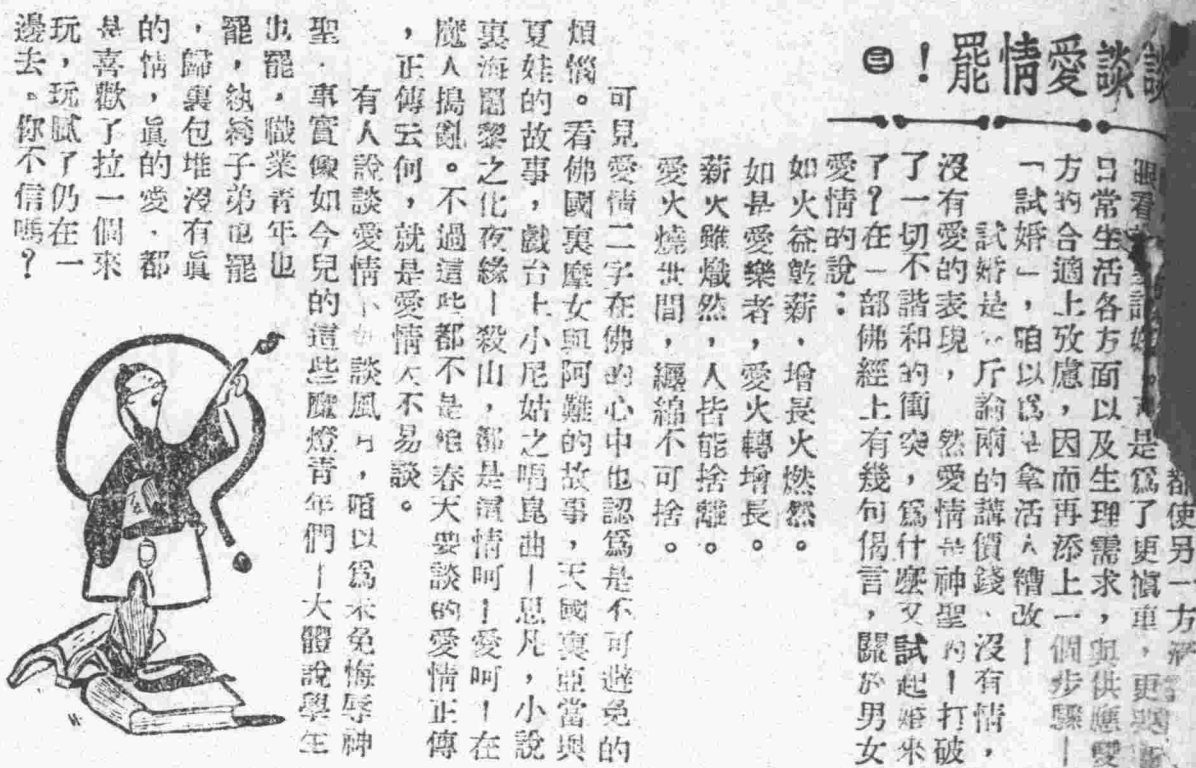 談談愛情罷！㊂
都使另一方
是爲了更慎重，更
日常生活各方面以及生理需求，與供應雙
方的合適上攷慮，因而再添上一個步驟—
「試婚」，咱以爲是拿活人糟改—
試婚是論斤論兩的講價錢、沒有情，
沒有愛的表現，然愛情是神聖的！打破
了一切不諧和的衝突，爲什麼又試起婚來
了？在一部佛經上有幾句偈言，關於男女
愛情的說：
如火益乾薪，增長火燃然。
如是愛樂者，愛火轉增長。
薪火雖熾然，人皆能捨離。
愛火燒世間，纏綿不可捨。
可見愛情二字在佛的心中也認爲是不可避免的
煩惱。看佛國裏摩女與阿難的故事，天國裏亞當與
夏娃的故事，戲台上小尼姑之唱崑曲—思凡，小說
裏海闍黎之化夜緣—殺山，都是這情呵！愛呵！在
魔人搗亂。不過這些都不是絶春天要談的愛情正傳
，正傳云何，就是愛情大不易談。
有人說談愛情不如談風月，咱以爲未免侮辱神
聖，事實像如今兒的這些魔燈青年們—大體說學生
也罷，職業青年也
罷，紈綺子弟也罷
，歸裏包堆沒有眞
的情，眞的愛，都
是喜歡了拉一個來
玩，玩膩了仍在一
邊去。你不信嗎？